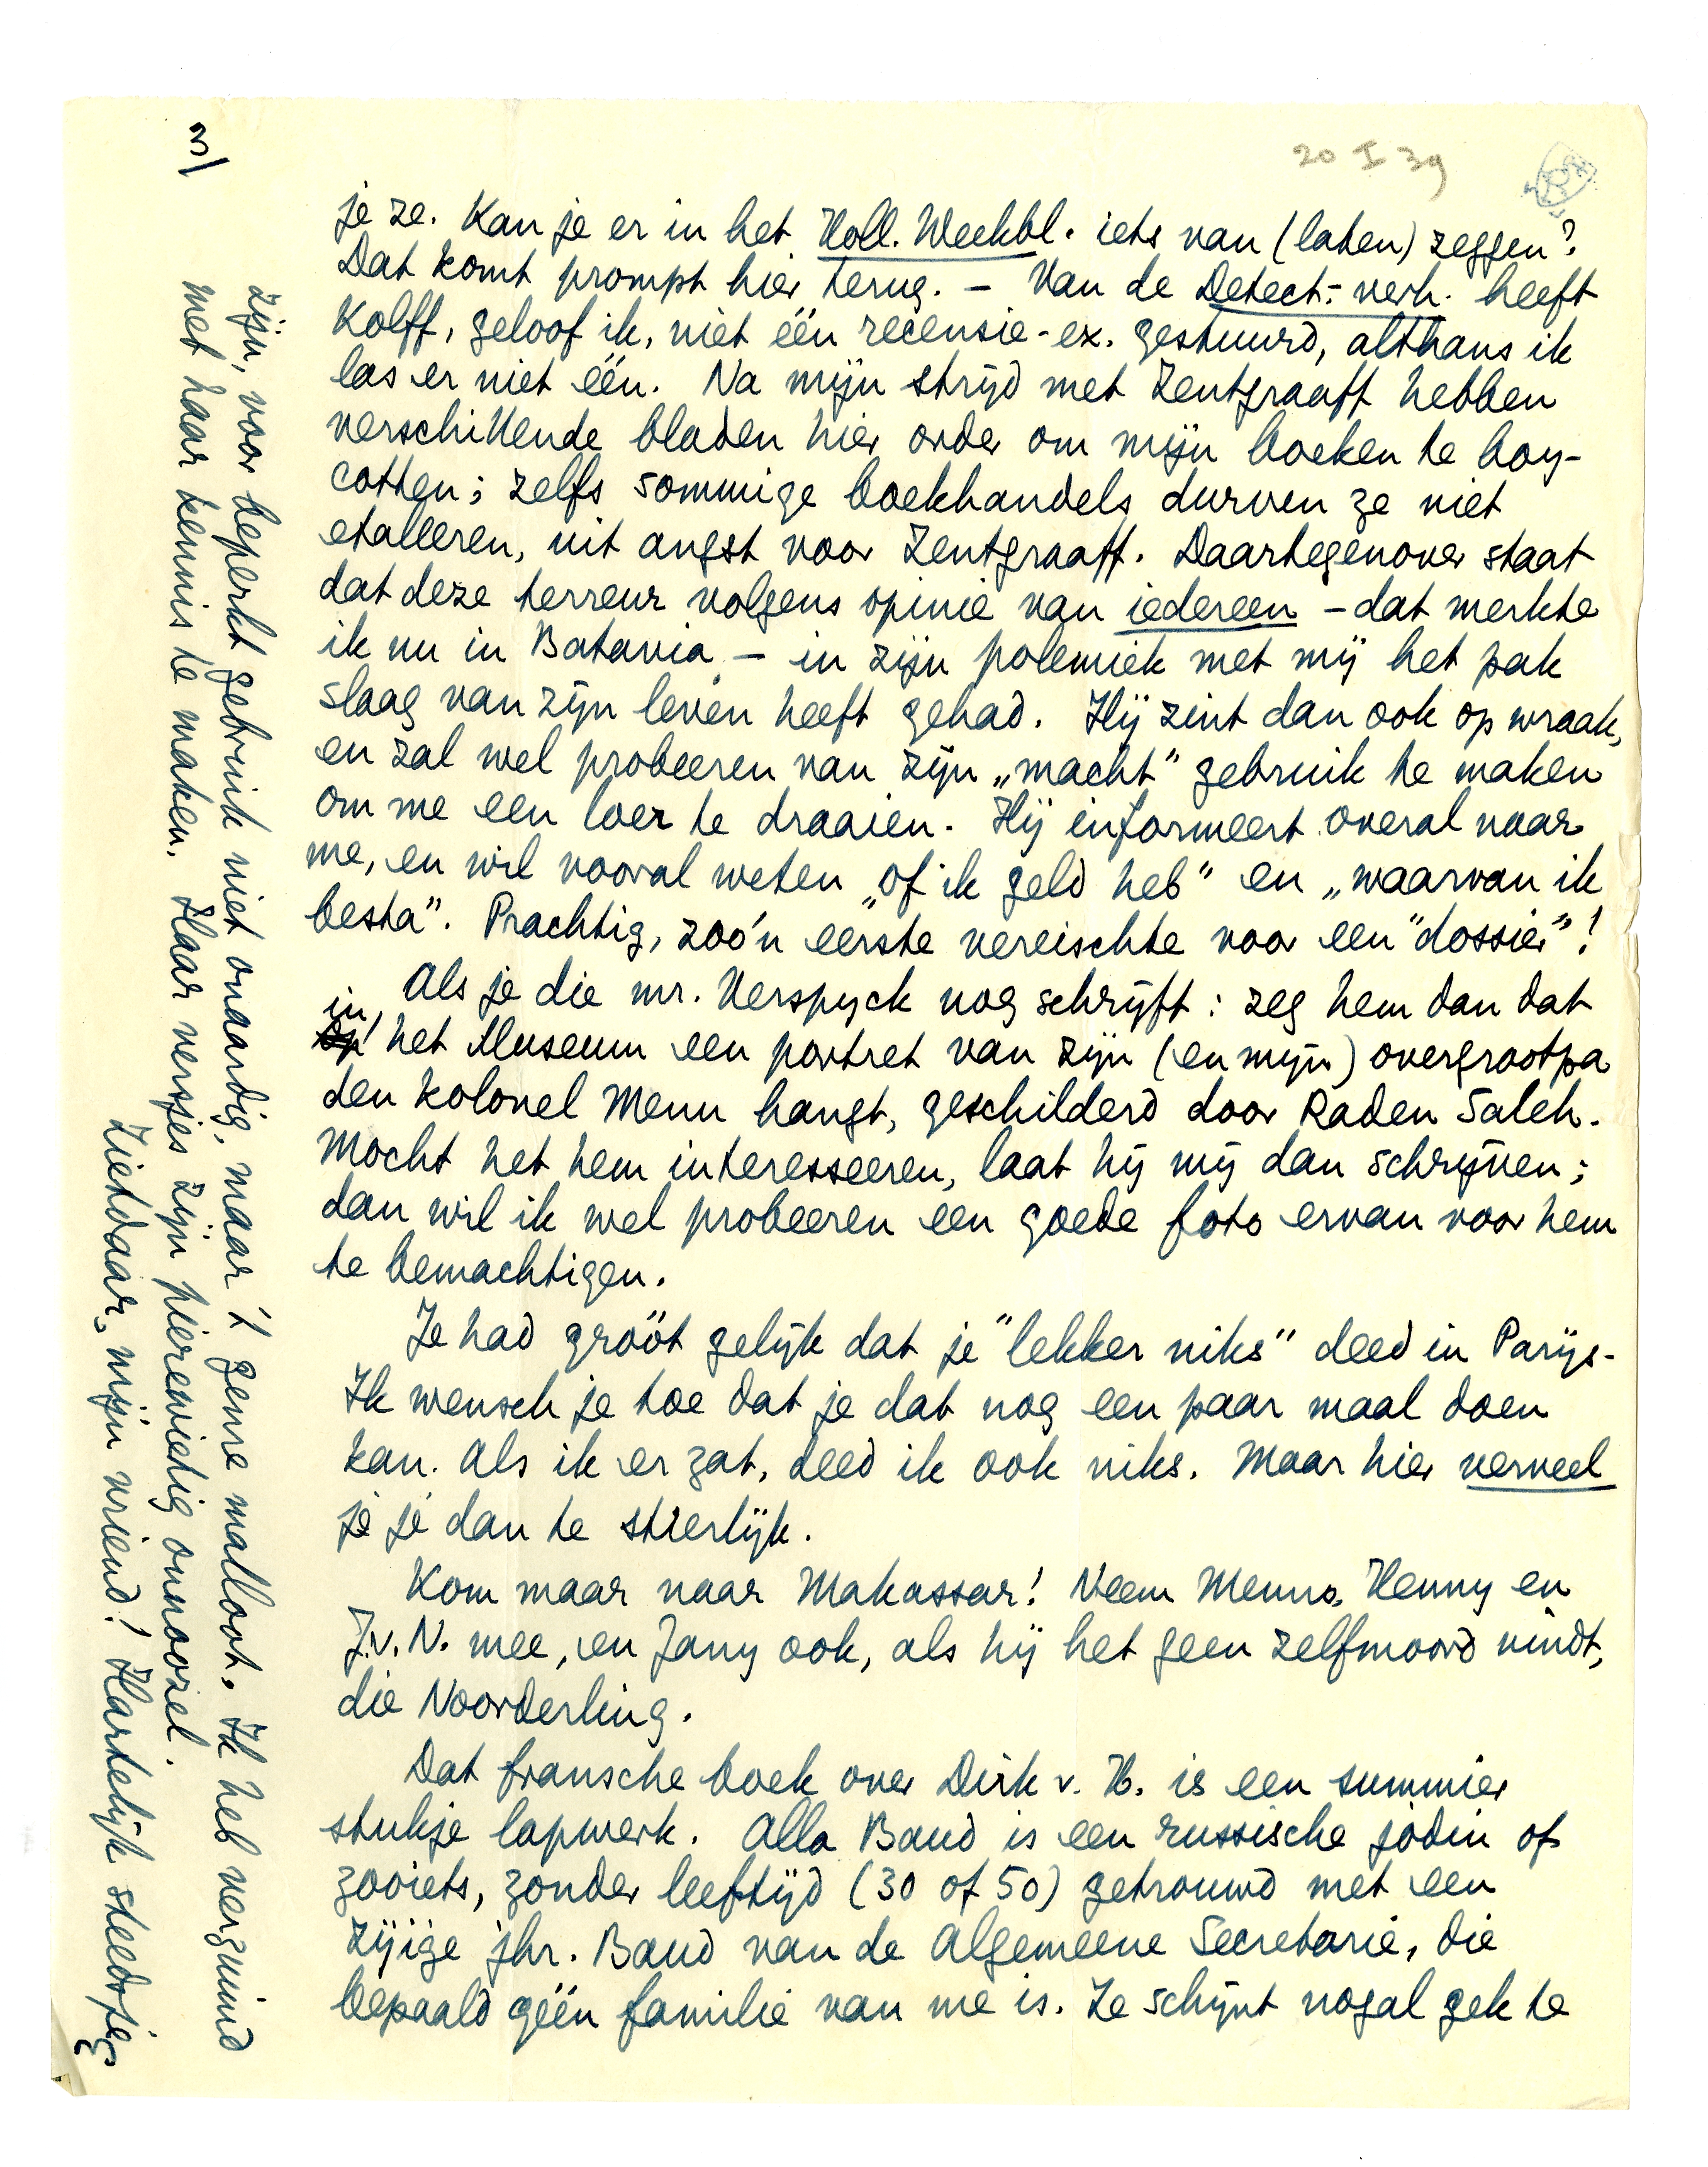 3/
20 I 39
je ze. Kan je er in het Holl. Weekbl. iets van (laten) zeggen?
Dat komt prompt hier terug. – Van de Detect.-verh. heeft
Kolff, geloof ik, niet één recensie-ex. gestuurd, althans ik
las er niet één. Na mijn strijd met Zentgraaff hebben
verschillende bladen hier order om mijn boeken te boy-
cotten; zelfs sommige boekhandels durven ze niet
etalleren, uit angst voor Zentgraaff. Daartegenover staat
dat deze terreur volgens opinie van iedereen – dat merkte
ik nu in Batavia – in zijn polemiek met mij het pak
slaag van zijn leven heeft gehad. Hij zint dan ook op wraak,
en zal wel probeeren van zijn „macht” gebruik te maken
om me een loer te draaien. Hij informeert overal naar
me, en wil vooral weten „of ik geld heb” en „waarvan ik
besta”. Prachtig, zoo'n eerste vereischte voor een “dossier”!
Als je die mr. Verspyck nog schrijft: zeg hem dan dat
in
op het Museum een portret van zijn (en mijn) overgrootpa
den kolonel Menu hangt, geschilderd door Raden Saleh.
Mocht het hem interesseeren, laat hij mij dan schrijven;
dan wil ik wel probeeren een goede foto ervan voor hem
te bemachtigen.
Je had gróót gelijk dat je “lekker niks” deed in Parijs.
Ik wensch je toe dat je dat nog een paar maal doen
kan. Als ik er zat, deed ik ook niks. Maar hier verveel
je je dan te stierlijk.
Kom maar naar Makassar! Neem Menno, Henny en
J.v.N. mee, en Jany ook, als hij het geen zelfmoord vindt,
die Noorderling.
Dat fransche boek over Dirk v. H. is een summier
stukje lapwerk. Alla Baud is een russische jodin of
zooiets, zonder leeftijd (30 of 50) getrouwd met een
zijïge jhr. Baud van de Algemeene Secretarie, die
bepaald géén familie van me is. Ze schijnt nogal gek te
zijn, voor beperkt gebruik niet onaardig, maar 'n genre malloot. Ik heb verzuimd
met haar kennis te maken. Haar versjes zijn pierewietig onnoozel.
Ziehdaar, mijn vriend! Hartelijk steeds je